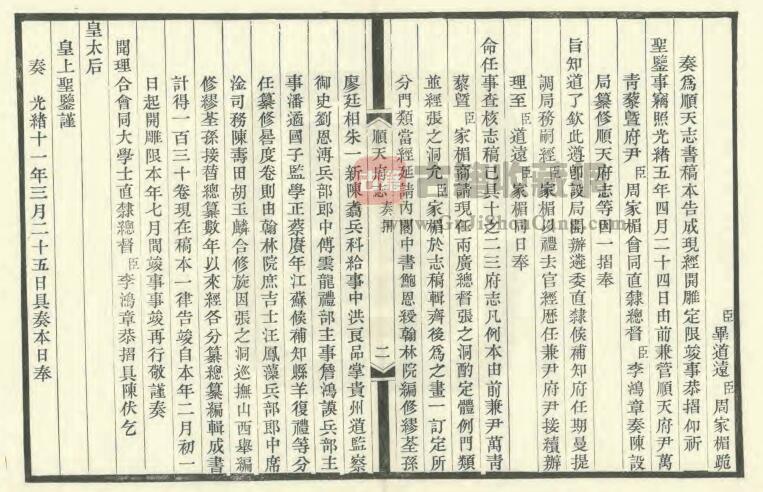 臣 畢道遠 臣 周家楣跪
奏為順天志書稿本告成現經開雕定限竣事恭摺仰祈
聖鑒事竊照光緒五年四月二十四日由前兼管順天府尹萬
青藜暨府尹 臣 周家楣會同直隸總督 臣 李鴻章奏陳設
局纂修順天府志等因一摺奉
旨知道了欽此遵即設局開辦遴委直隸候補知府任期曼提
調局務嗣經 臣 家楣以憂禮去官經歷任兼尹府尹接續辦
理至 臣 道遠 臣 家楣 日奉
命任事查核志稿已具十之二三府志凡例本由前兼尹萬青
藜暨 臣 家楣商請現任兩廣總督張之洞酌定體例門類
並經張之洞允 臣 家楣於志稿輯齊後為之畫一訂定所
分門類當經延請內閣中書鮑恩綬翰林院編修繆荃孫
順天府志 奏摺 二
廖廷相朱一新陳翥兵科給事中洪良品掌貴州道監察
御史劉恩溥兵部郎中傅雲龍禮部主事詹鴻謨兵部主
事潘遹國子監學正蔡賡年江蘇候補知縣羊復禮等分
任纂修晷度卷則由翰林院庶吉士汪鳳藻兵部郎中席
淦司務陳壽田胡玉麟合修旋因張之洞巡撫山西舉編
修繆荃孫接替總纂數年以來經各分纂總纂編輯成書
計得一百三十卷現在稿本一律告竣自本年二月初一
日起開雕限本年七月間竣事事竣再行敬謹奏
聞理合會同大學士直隸總督 臣 李鴻章恭摺具陳伏乞
皇太后
皇上聖鑒謹
奏 光緒十一年三月二十五日具奏本日奉
古籍收藏網
GuJiShouCang.com